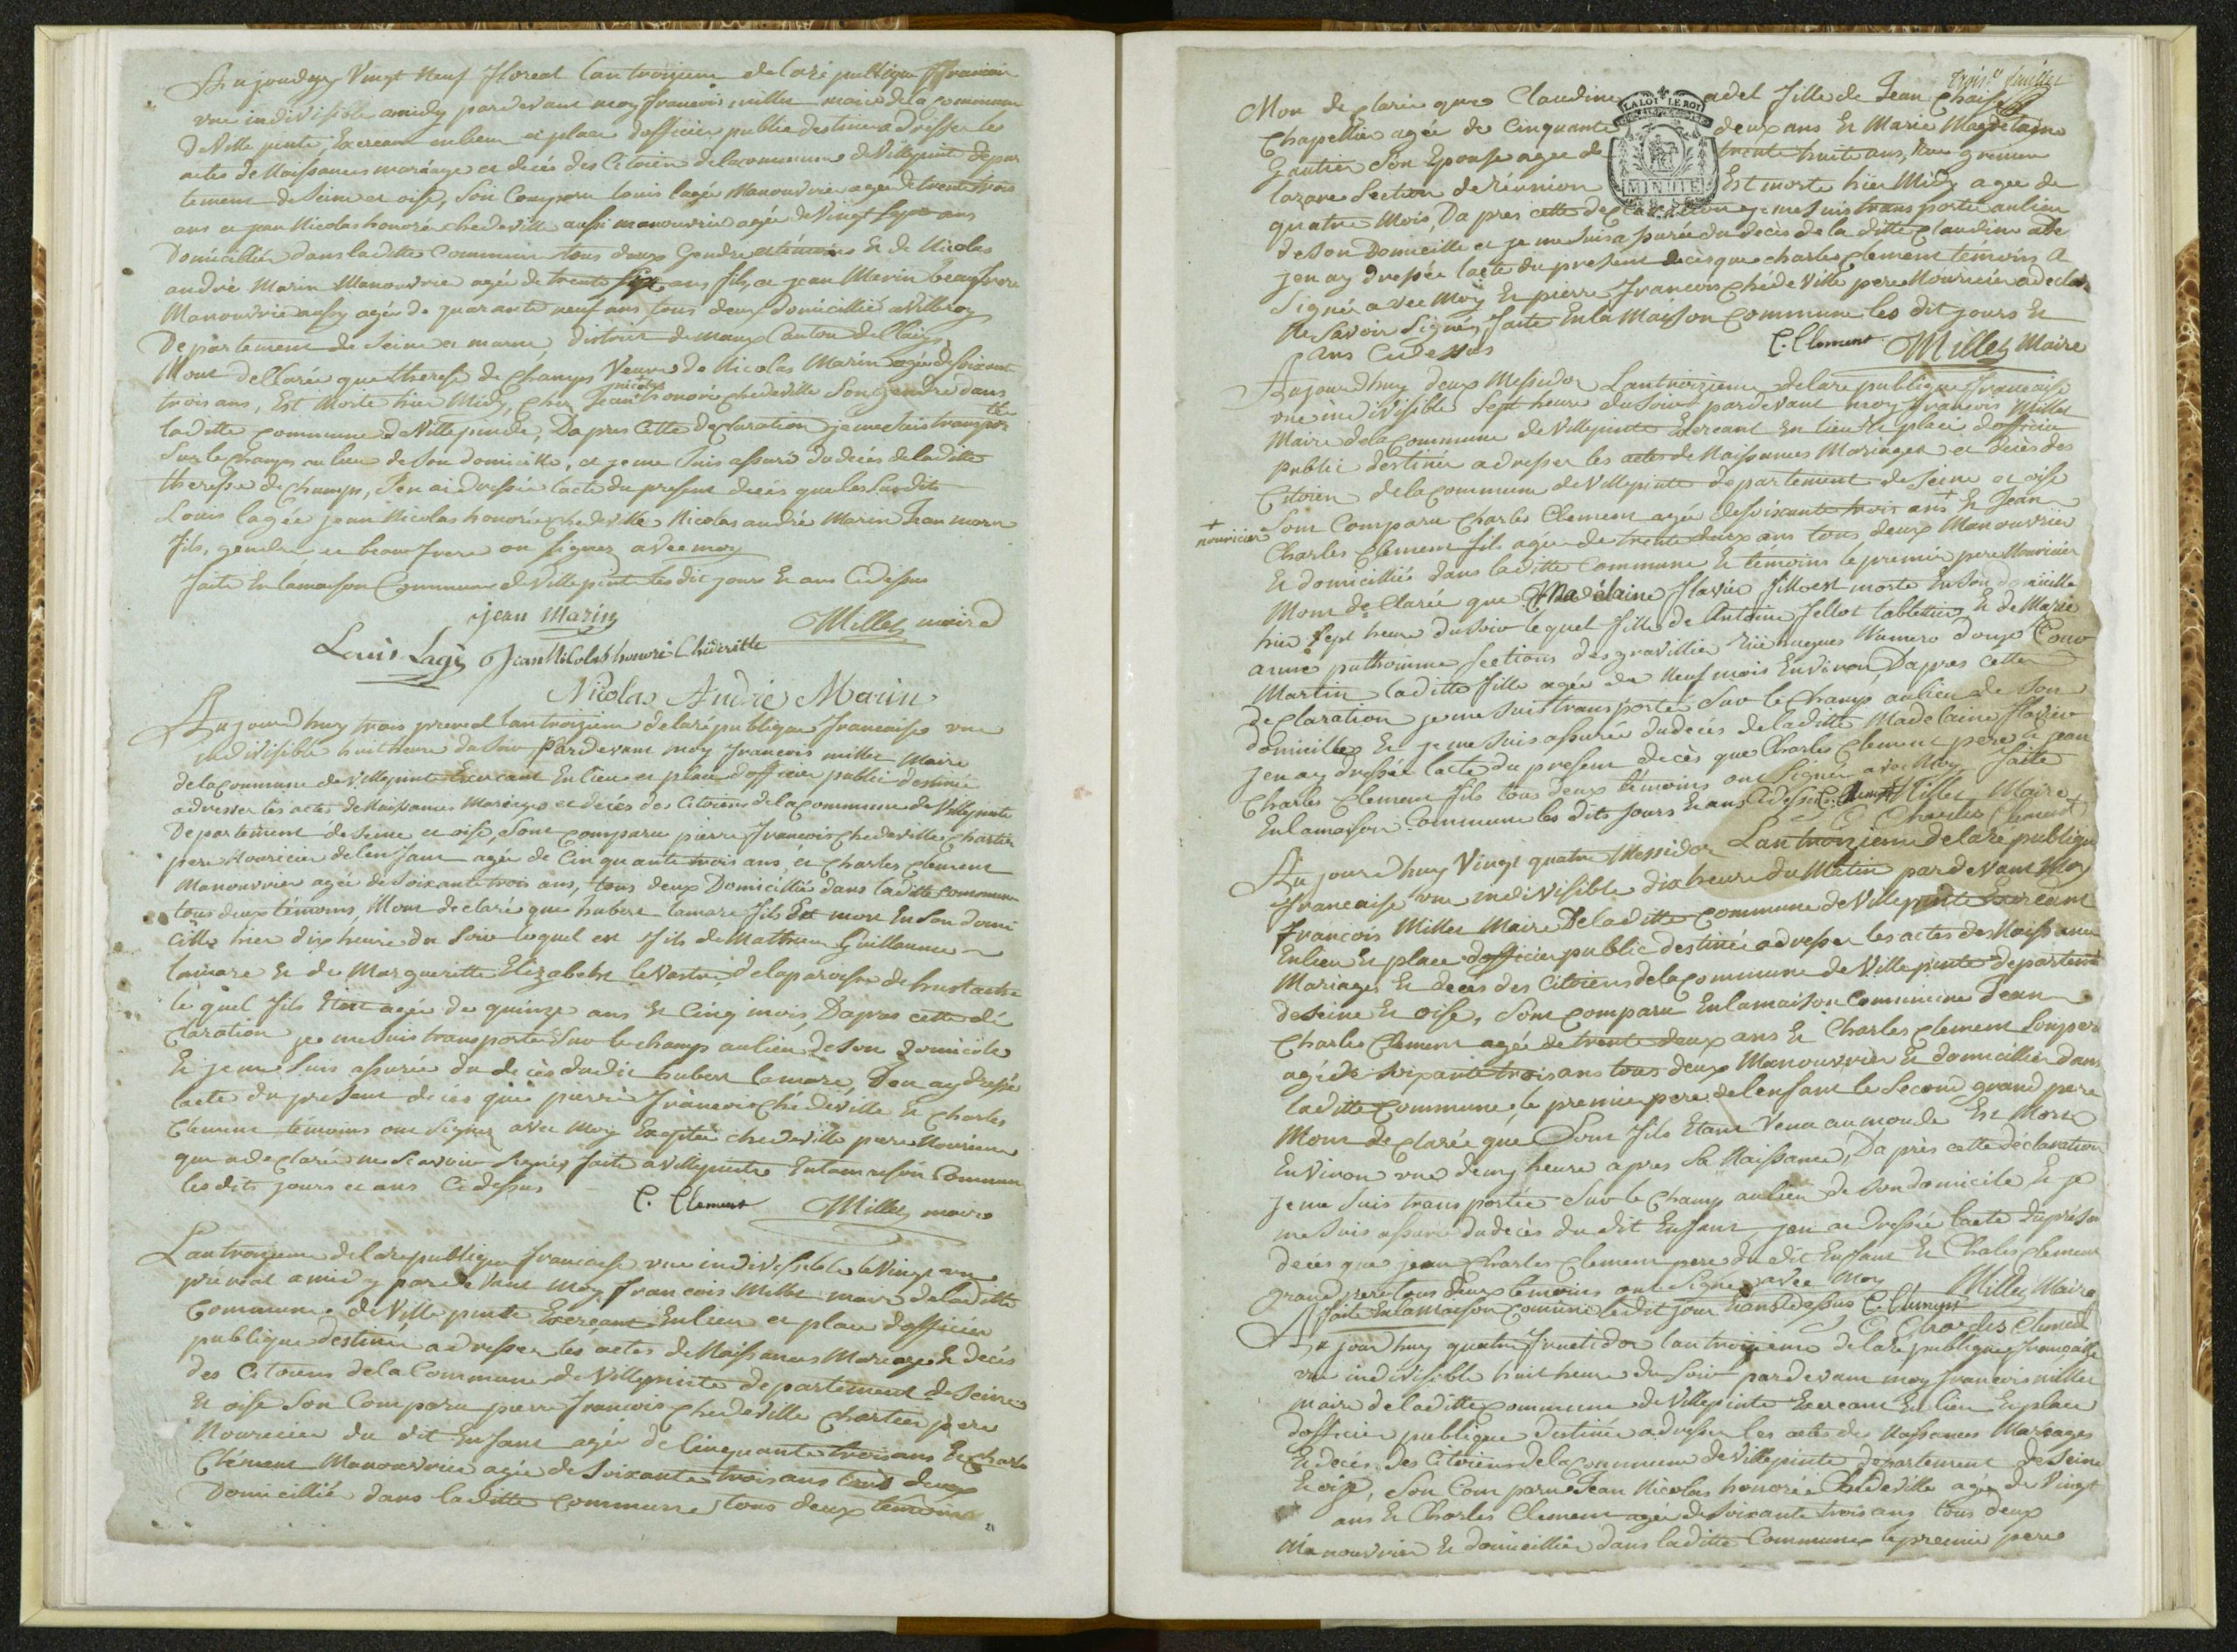 Aujourdhuy Vingt Neuf floreal lan troizieme de la republique francoise
une indivisible amidy pardevant moy francois millet maire de la commune
de Ville pinte, Exercant en lieu et place dofficier public destinee a dresser les
actes de Naissances mariage et decés des Citoien de la commune de Villepinte depar
tement de Seine et oise, Son Comparu Louis lagée Manouvrier agée de trente trois
ans et jean Nicolas honoré chedeville aussi manouvrier agée de Vingt Sept ans
Domicilliée dans la ditte Commune tous deux Gendre et témoins Et de Nicolas
andré Marin Manouvrie agée de trente Six ans fils, et jean Marin beaufrere
Manouvrie aussy agée de quarante neuf ans tous deux domicillié a Villeroy
Departement de Seine et marne, district de maux Canton de Claye,
Mont desclarée que therese de Champs Veuve de Nicolas Marin agée de Soixante
trois ans, Est Morte hier Midy, chez Jean nicolas honoré chedeville Son gendre dans
la ditte commune de Ville pinte, Da pres Cette declaration je me suis transpor tée
Sur le Champs au lieu de Son domicille, et je me Suis assuré du decés de la ditte
therese de Champs, Jen ai dressée lacte du present decés que les Susdits
Louis lagée jean Nicolas honorée chedeville Nicolas andré Marin Jean marin
fils, gendre et beau frere on Signez avec moy
faite En la maison Commune de Villepinte les dit jours Et ans Cidessus
jean Marin
Millet maire
Louis Lagé Jean Nicolas honoré Chedeville
Nicolas André Marin
Aujourdhuy trois prereal lan troizieme de la republique francaise une
indivisible huit heure du Soir Pardevant moy francois millet Maire
de la commune de Villepinte Exercant En lieu et place dofficier public destinée
a dresser les actes de Naissances Mariages et decés des Citoiens de la commune de Villepinte
Departement de Seine et oise, Sont comparu pierre francois chedeville Chartier
pere Nouricier de lenfant agée de Cinquante trois ans, et Charles Clement
Manouvrier agée de Soixante trois ans, tous deux Domicillié dans la ditte commune
tous deux témoins, Mont declaré que hubert lamare fils Est mort En Son domi
cille hier dix heure du Soir lequel est fils de Matthieu Guillaume
lamare Et de Margueritte Elizabeth de la paroisse de
le quel fils Etant agée de quinze ans Et Cinq mois, Dapres cette dé
claration je me Suis transportée Sur le champs au lieu de Son Domicile
Et je me Suis assurée du decès dudit hubert lamare, Jen ay dressée
lacte du present decés que pierre francois Chédeville Et Charles
Clement témoins ont Signez avec Moy Exceptée chedeville pere Nouricier
qui a declaré ne Scavoir Signés faite a Villepinte En la maison Commune
les dits jours et ans Cidessus
C. Clement Millet maire
Lan troizieme de la republique francaise une indivisible le Vingt un
prereal a midy pardevant Moy francois Millet maire de la ditte
Commune de Ville pinte Exerçant En lieu et place dofficier
publique destinée a dresser les actes de Naissances Mariage Et decés
des Citoiens de la Commune de Villepinte departement de Seine
Et oise Son Comparu pierre francois chedeville Chartier pere
Nouricier du dit Enfant agée de Cinquante trois ans Et Charle
Clément Manouvrier agée de Soixante trois ans tous deux
Domicillié dans la ditte commune, tous deux temoins
trois.e feuillet
Mon declarée que Claudine adel fille de Jean
Chapellier agée de Cinquante deux ans Et Marie Magdelaine
LA LOI LE ROI
MINUTE
Gautier Son Epouse agee de trente huite ans, Rue
lazare Section de réunion Est morte hier Midy agee de
quatre Mois, Da pres cette declaration je me Suis transportée au lieu
de Son Domicille et je me Suis assurée du decès de la ditte Claudine
jen ay dressée lacte du present decès que charles Clement témoins a
Signé avec Moy Et pierre francois chédeville pere Nourricier a declar
Ne Savoir Signés, faite En la Maison Commune les dit jours Et
ans Cidessus
C. Clement Millet Maire
Aujourdhuy deux Messidor Lantroizieme de la republique francaise
une indivisible Sept heure du Soir pardevant moy francois Millet
Maire de la commune de Villepinte Exercant En lieu Et place dofficier
public destinée a dresser les actes de Naissances Mariages et decès des
Citoien de la Commune de Villepinte departement de Seine et oise
Sont Comparu Charles Clement agée de Soixante trois ans + Et Jean
+ nouricier
Charles Clement fils agée de trente deux ans tous deux Manouvrier
Et domicilliés dans la ditte Commune Et témoins le premier pere Nouricier
Mont declarée que Madelaine flavie fillest morte En Son domicille
hier Sept heure du Soir lequel fille de Antoine fellot tabletier, Et de Marie
anne Sections des gravillier Rüe Numero douze Cour
Martin la ditte fille agée de Neuf mois Environ, Dapres cette
declaration je me Suis transportée Sur le champs au lieu de Son
domicille Et je me Suis assurée du decés de la ditte Madelaine flavie
jen ay dressée lacte du present decès que Charles Clement pere et jean
Charles Clement fils tous deux témoins ont Signer avec Moy faite
En la maison Commune les dits jours Et ans Cidessus C. Clement Millet Maire
Charles Clement
Aujourdhuy Vingt quatre Messidor Lantroizieme de la republique
francaise une indivisible dix heure du Matin pardevant Moy
francois Millet Maire De la ditte commune de Villepinte Exercant
En lieu Et place dofficier public destinée a dresser les actes des Naissance
Mariages Et deces des Citoiens de la Commune de Villepinte departem
de Seine Et oise, Sont comparu En la maison Commune Jean
Charles Clement agée de trente deux ans Et Charles Clement Son pere
agé de Soixante trois ans tous deux Manouvrier Et domicillier dans
la ditte Commune, le premier pere de lenfant le Second grand pere
Mont declarée que Son fils Etant Venu au monde Est Mort
Environ une demy heure apres Sa Naissance, Da près cette déclaration
je me Suis transportée Sur le Champ au lieu de Son domicile Et je
me Suis assurée du decès du dit Enfant jen ai dressée lacte du présen
decés que jean Charles Clement pere du dit Enfant Et Charles Clement
grand pere tous deux temoins ont Signer avec Moy Millet Maire
faite En la Maison Commune ledit jour Et an Cidessus C. Clement
Charles Clement
Aujourdhuy quatre fructidor lan troizieme de la republique française
une indivisible huit heure du Soir pardevant moy francois millet
maire de la ditte Commune de Villepinte Exercant En lieu Et place
dofficier publique destinée a dresser les actes des Naissances Mariages
Et decés des Citoiens de la Commune de Villepinte departement de Seine
Et oise, Son Comparu Jean Nicolas honorée Chedeville agée de Vingt
ans Et Charles Clement agée de Soixante trois ans tous deux
Manouvrier Et domicillier dans la ditte Commune le premier pere